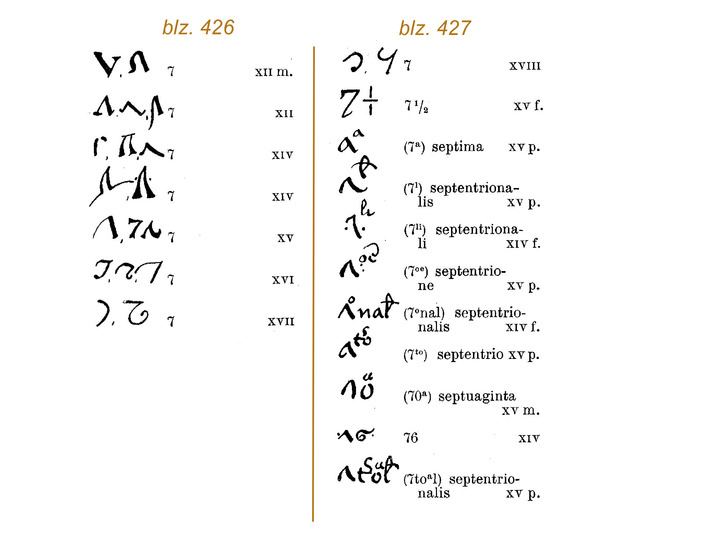 blz. 426
7 XII m.
7 XII
7 XIV
7 XIV
7 XV
7 XVI
7 XVII
blz. 427
7 XVIII
7 1/2 XV f.
(7ᵃ) septima XV p.
(7ˡ) septentriona-
lis XV p.
(7ˡⁱ) septentriona-
li XIV f.
(7ᵒᵉ) septentrio-
ne XV p.
(7ᵒnal) septentrio-
nalis XIV f.
(7ᵗᵒ) septentrio XV p.
(70ᵃ) septuaginta
XV m.
76 XIV
(7toᵃl) septentrio-
nalis XV p.